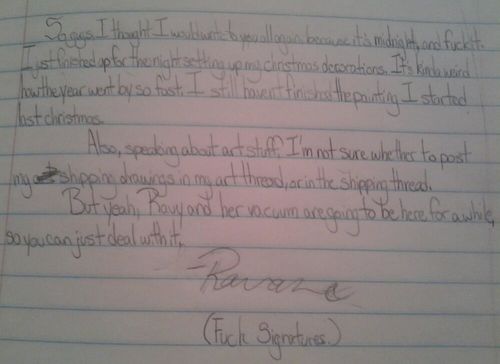 So guys, I thought I would write to you all again because it's midnight, and fuck it.
I just finished up for the night setting up my christmas decorations. It's kinda weird
how the year went by so fast. I still haven't finished the painting I started
last christmas.
Also, speaking about art stuff, I'm not sure whether to post
my shipping drawings in my art thread, or in the shipping thread.
But yeah, Ravy and her vacuum are going to be here for a while,
so you can just deal with it.
(Fuck Signatures.)